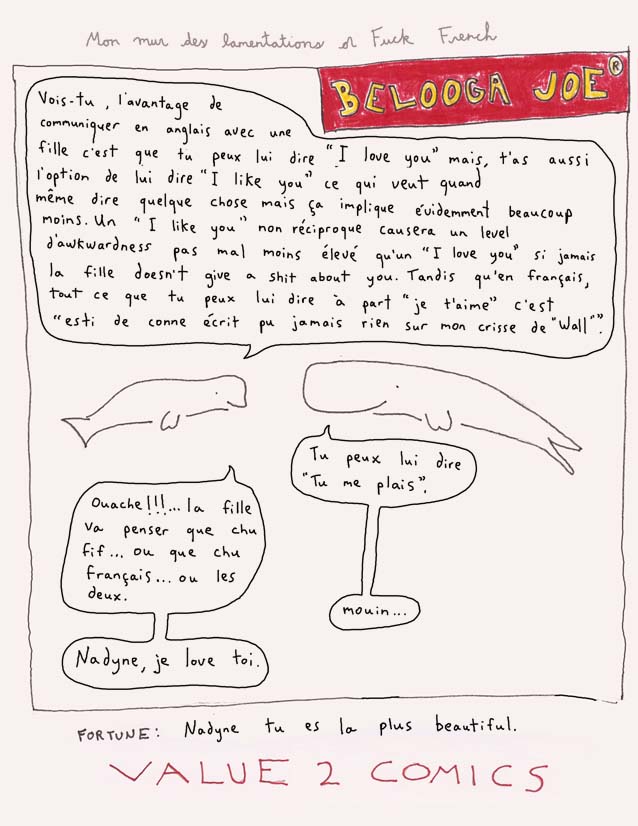 Mon mur des lamentations or Fuck French
BELOOGA JOE®
Vois-tu, l'avantage de
communiquer en anglais avec une
fille c'est que tu peux lui dire "I love you" mais, t'as aussi
l'option de lui dire "I like you" ce qui veut quand
même dire quelque chose mais ça implique évidemment beaucoup
moins. Un "I like you" non réciproque causera un level
d'awkwardness pas mal moins élevé qu'un "I love you" si jamais
la fille doesn't give a shit about you. Tandis qu'en français,
tout ce que tu peux lui dire à part "je t'aime" c'est
"esti de conne écrit pu jamais rien sur mon crisse de "Wall"".
Tu peux lui dire
"Tu me plais".
Ouache!!!... la fille
va penser que chu
fif... ou que chu
français... ou les
deux.
mouin...
Nadyne, je love toi.
FORTUNE: Nadyne tu es la plus beautiful.
VALUE 2 COMICS